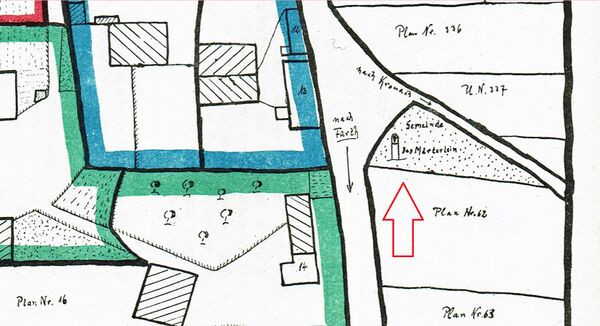 Plan Nr. 336
U. N. 337
nach Kronach
12
13
nach
Fürth
Gemeinde
Das Märterlein
Plan Nr. 62
14
Plan Nr. 16
Plan Nr. 63